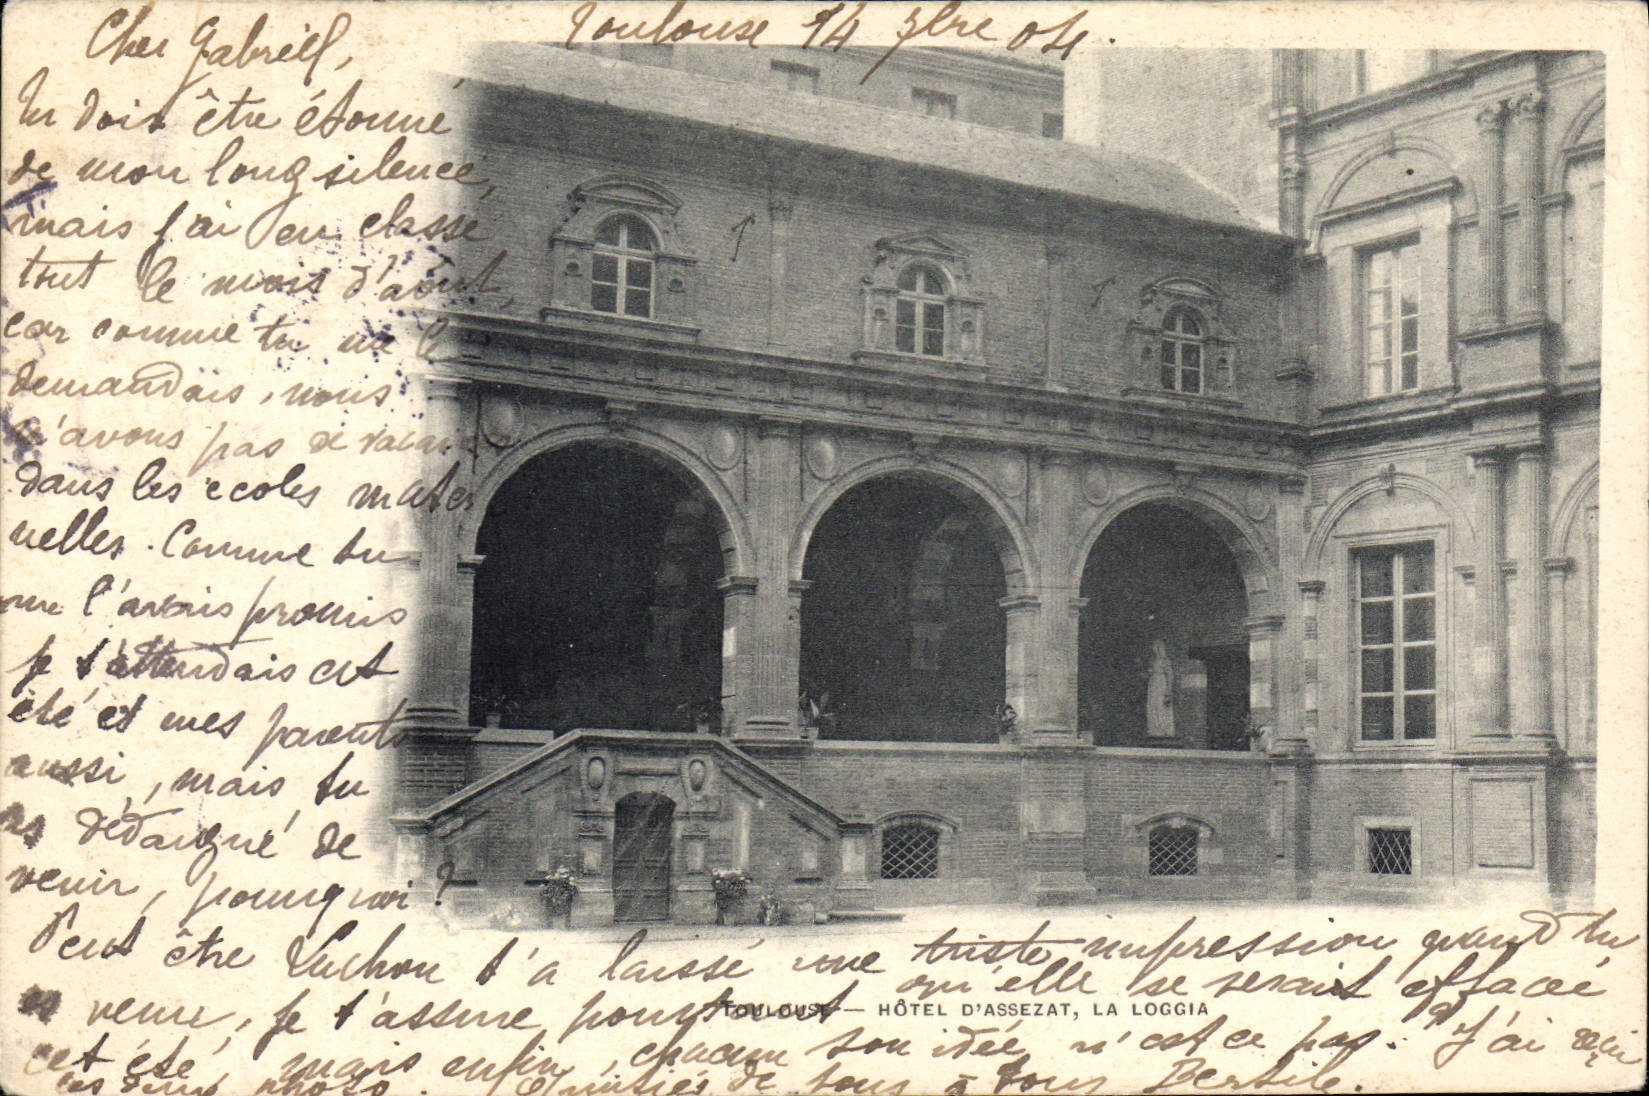 Toulouse 14 7bre 04.
Cher Gabriel,
tu dois être étonné
de mon long silence,
mais j'ai eu classe
tout le mois d'août,
car comme tu me le
demandais, nous
n'avons pas de vacances
dans les écoles mater
nelles. Comme tu
me l'avais promis
je t'attendais cet
été et mes parents
aussi, mais tu
as dédaigné de
venir, pourquoi?
Peut être Luchon t'a laissé une triste impression quand tu
es venu, je t'assure pourtant qu'elle se serait effacée
TOULOUSE — HÔTEL D'ASSEZAT, LA LOGGIA
cet été, mais enfin, chacun son idée n'est ce pas. J'ai reçu
les deux photo. Amitiés de tous à tous Bertile.